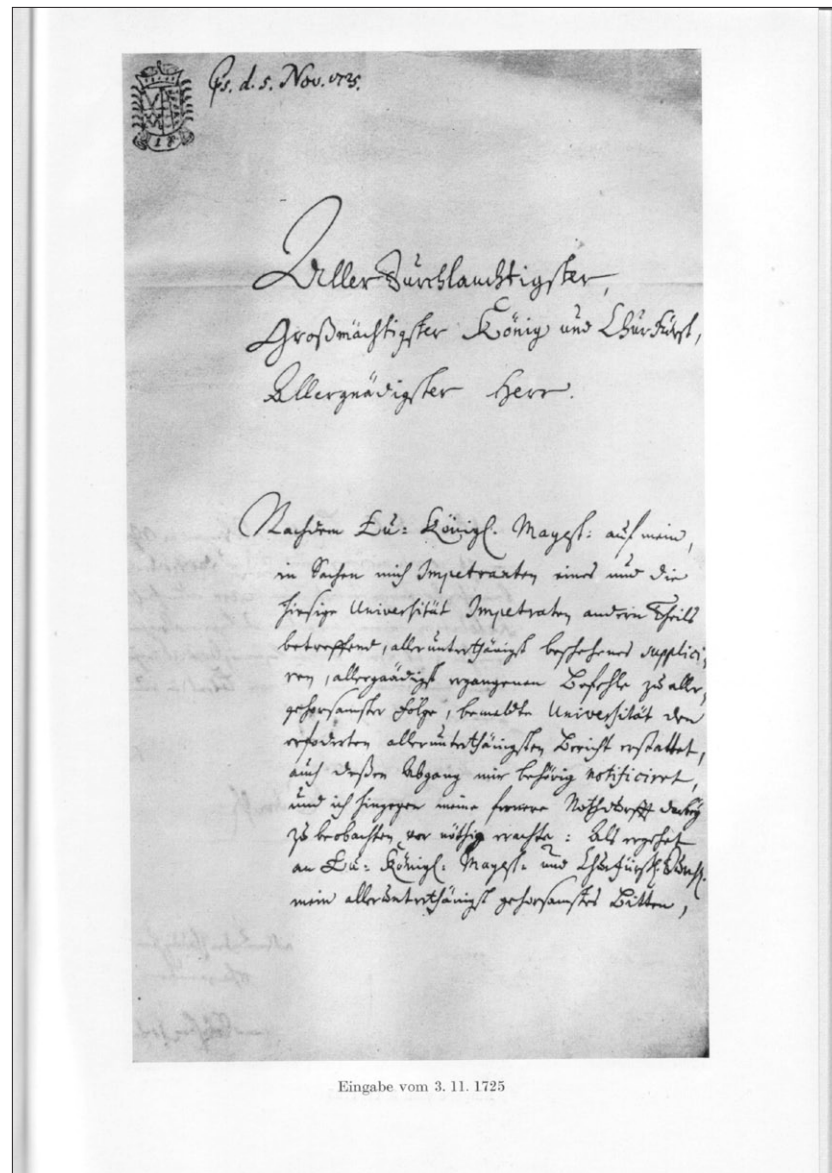 Ps. d. 5. Nov. 1725.
Aller Durchlauchtigster,
Großmächtigster König und ChurFürst,
Allergnädigster Herr.
Nachdem Eu: Königl. Mayest: auf mein,
in Sachen mich Impetranten eines und die
hiesige Universität Impetraten andern Theils
betreffend, allerunterthänigst beschehenes supplici-
ren, allergnädigst ergangenen Befehle zu aller-
gehorsamster Folge, bemeldte Universität den
erfoderten allerunterthänigsten Bericht erstattet,
auch deßen Abgang mir behörig notificiret,
und ich hingegen meine fernere Nothdurfft dabey
zu beobachten vor nöthig erachte: Als ergehet
an Eu: Königl: Mayest: und Churfürstl. Durchl.
mein allerunterthänigst gehorsamstes Bitten,
Eingabe vom 3. 11. 1725